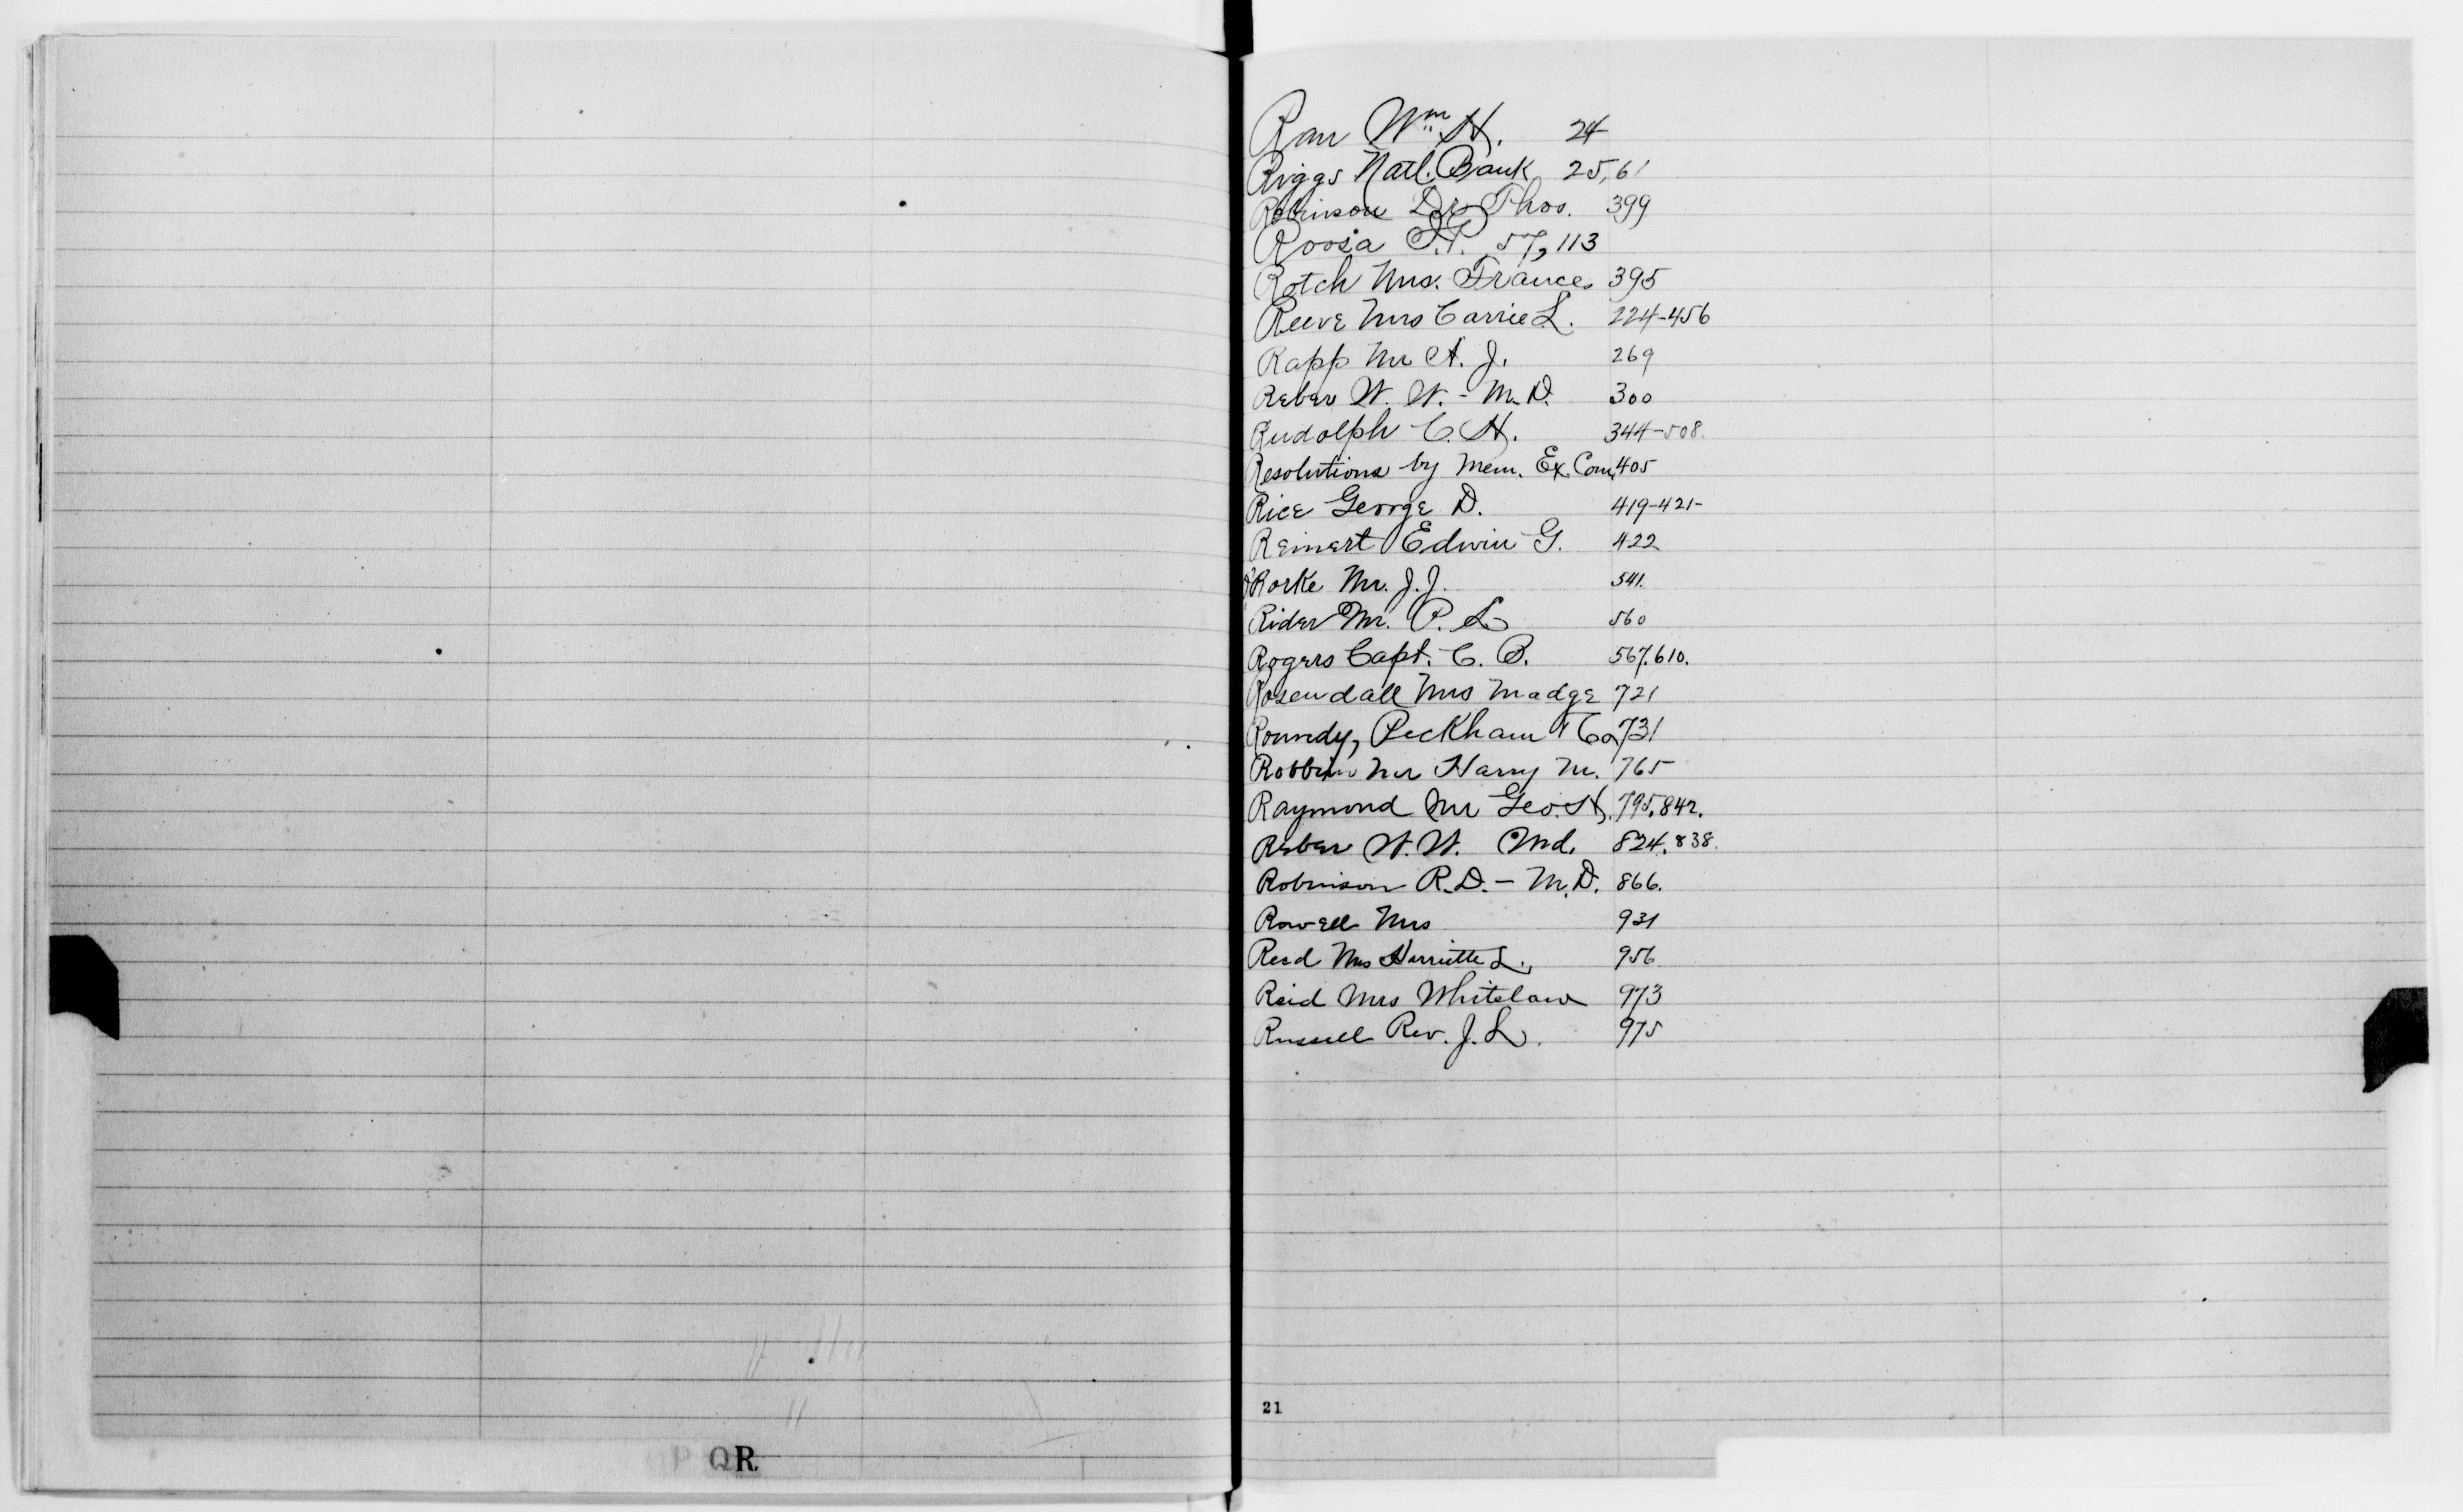 Rau Wm H. 24
Riggs Natl. Bank 25, 61
Robinson Dr Thos. 399
Roosa 57, 113
Rotch Mrs. Frances 395
Reeve Mrs Carrie L. 224-456
Rapp Mr A. J. 269
Reber W. W. - M.D. 300
Rudolph C. H. 344-508.
Resolutions by Mem. Ex. Com. 405
Rice George D. 419-421-
Reinert Edwin G. 422
O'Rorke Mr. J. J. 541.
Rider Mr. P. L. 560
Rogers Capt. C. B. 567. 610.
Rosendall Mrs Madge 721
Roundy, Peckham + Co 731
Robbins Mr Harry M. 765
Raymond Mr Geo. H. 795. 842.
Reber W. W. Md. 824. 838.
Robinson R. D. - M.D. 866.
Rowell Mrs 931
Read Mrs Harriette L. 956
Reid Mrs Whitelaw 973
Russell Rev. J. L. 975
21
P Q R